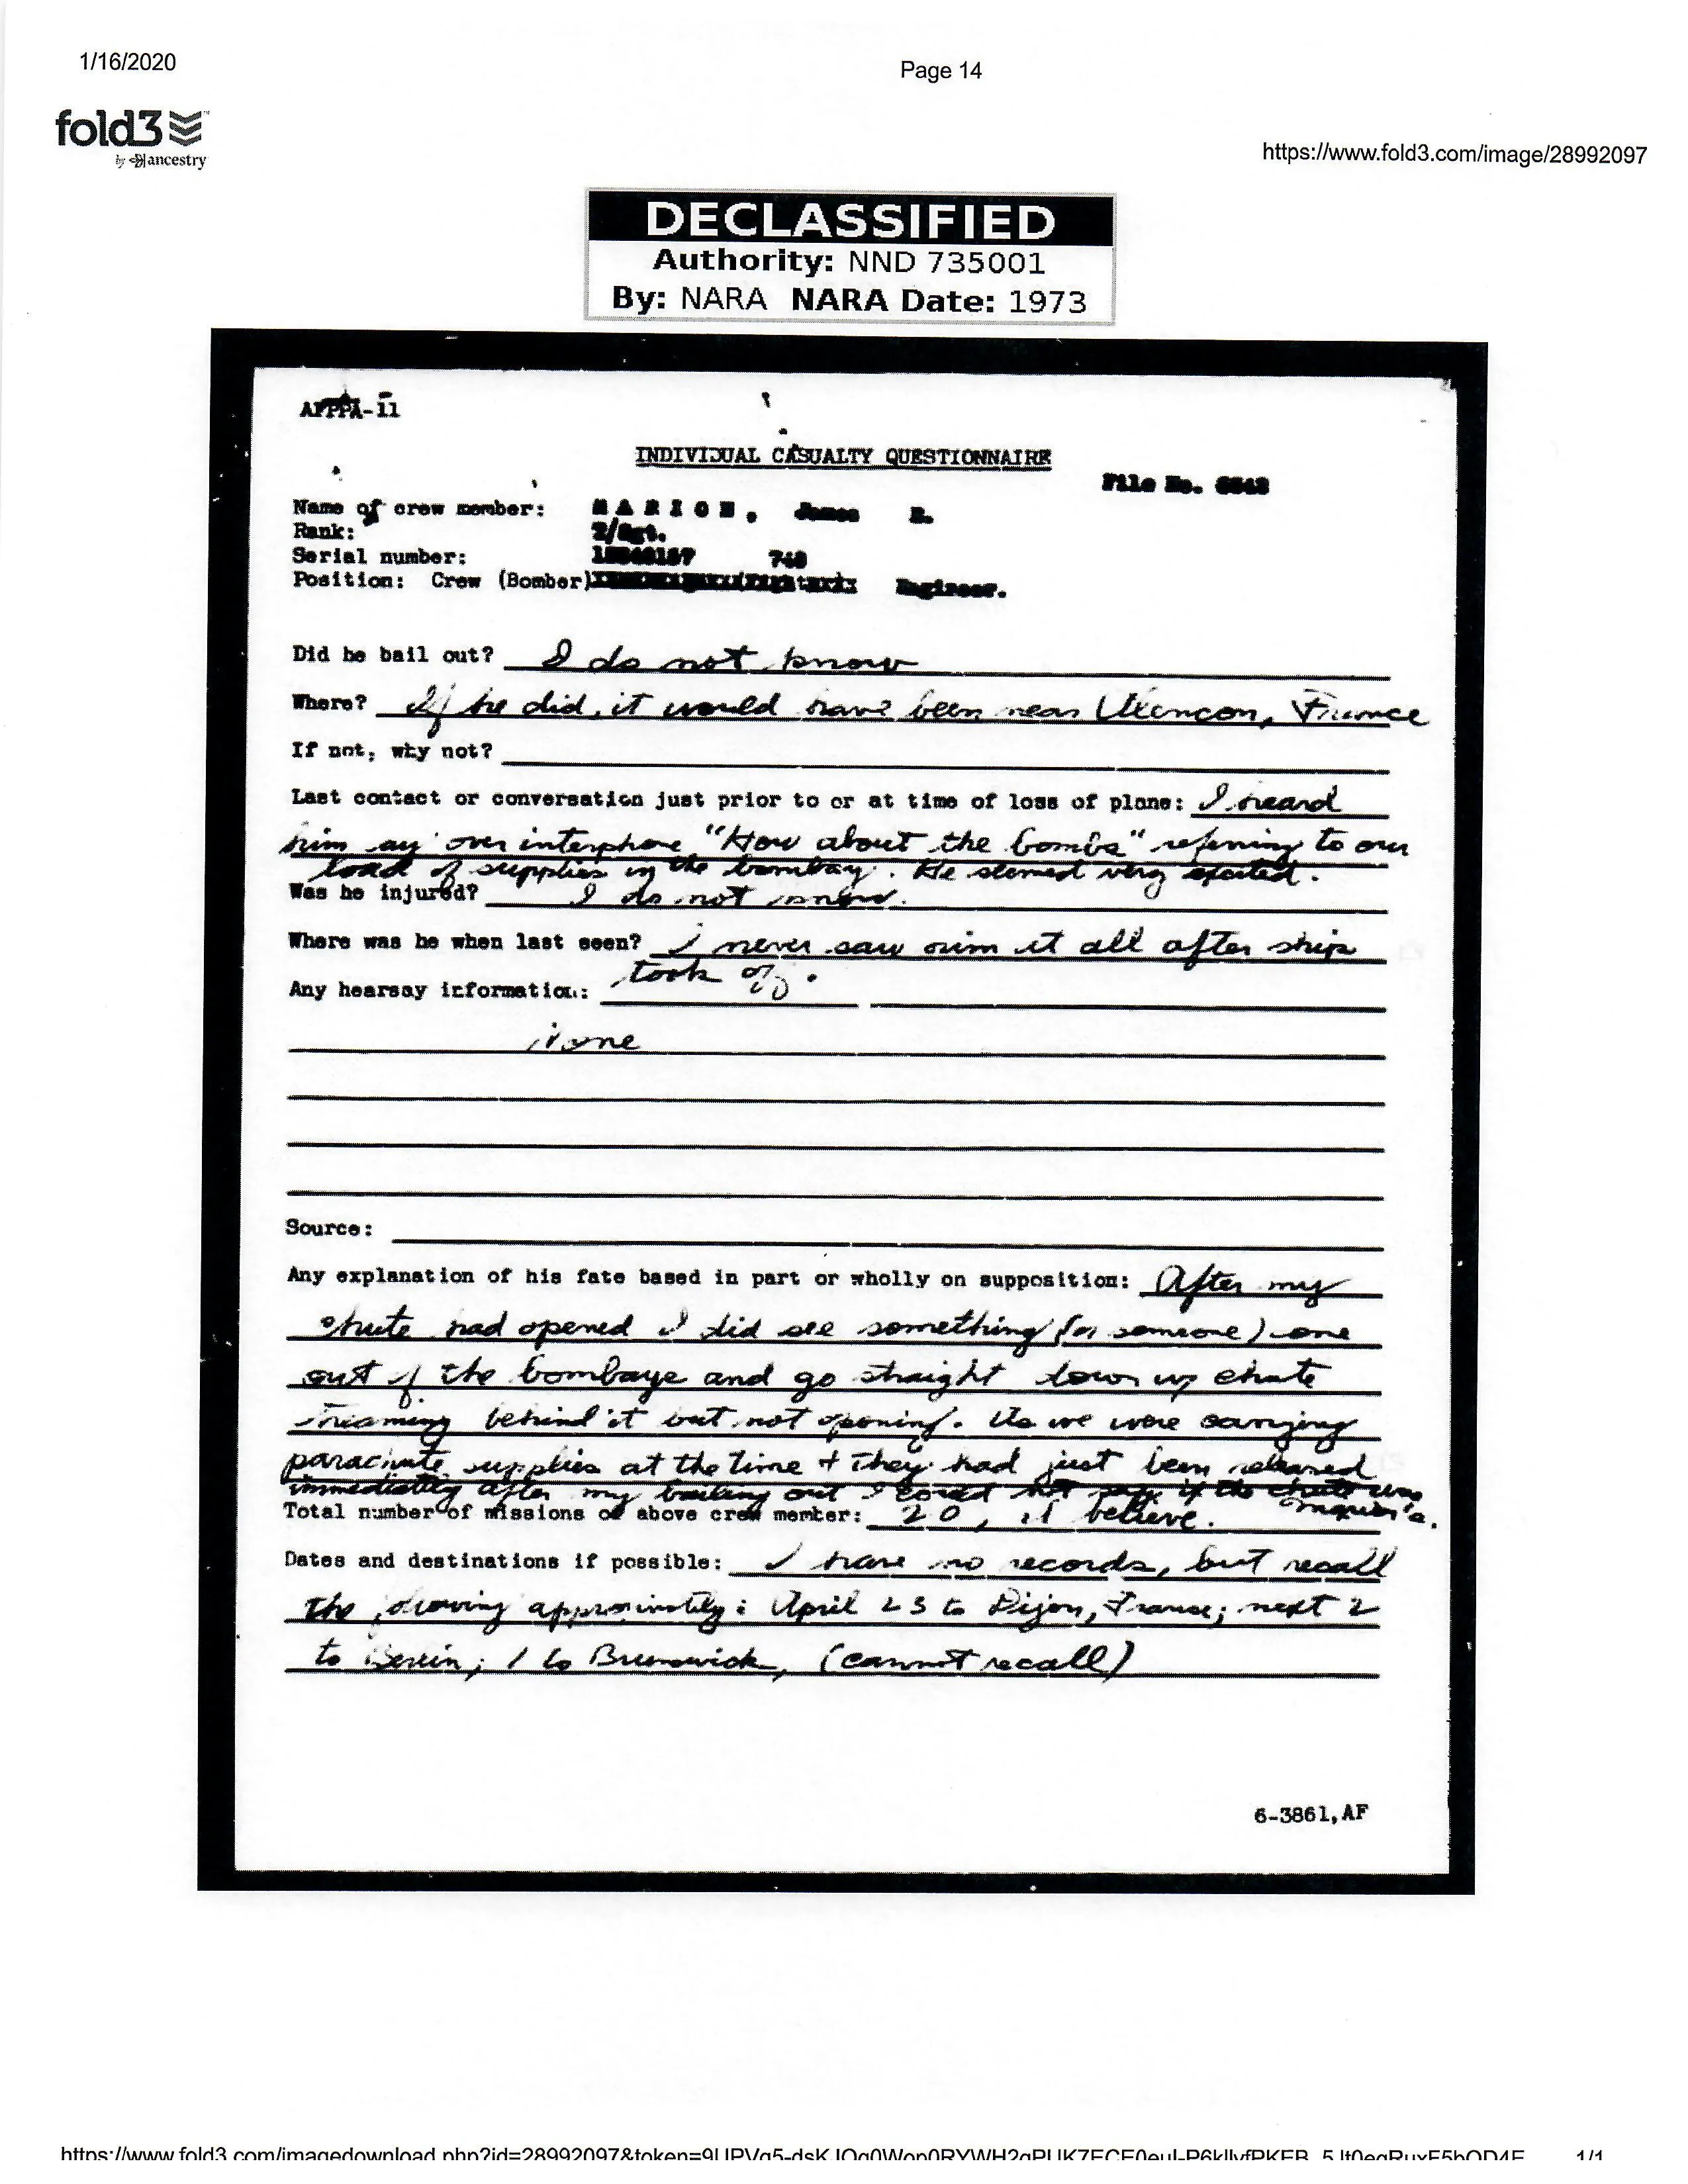 1/16/2020
Page 14
fold3
by ancestry
https://www.fold3.com/image/28992097
DECLASSIFIED
Authority: NND 735001
By: NARA NARA Date: 1973
AFPPA-11
INDIVIDUAL CASUALTY QUESTIONNAIRE
File No.
Name of crew member: MARION, James
Rank: T/Sgt.
Serial number: 748
Position: Crew (Bomber) Engineer.
Did he bail out? I do not know
Where? If he did, it would have been near Alencon, France
If not, why not?
Last contact or conversation just prior to or at time of loss of plane: I heard
him say over interphone "How about the bombs" referring to our
load of supplies in the bombay. He seemed very excited.
Was he injured? I do not know.
Where was he when last seen? I never saw him at all after ship
took off.
Any hearsay information:
None
Source:
Any explanation of his fate based in part or wholly on supposition: After my
chute had opened I did see something (or someone) come
out of the bombaye and go straight down w/ chute
streaming behind it but not opening. As we were carrying
parachute supplies at the time + they had just been released
immediately after my bailing out I could not say if the chute was
Marion's.
Total number of missions of above crew member: 20, I believe.
Dates and destinations if possible: I have no records, but recall
the following approximately: April 23 to Dijon, France; next 2
to Berlin; 1 to Brunswick, (cannot recall)
6-3861,AF
1/1